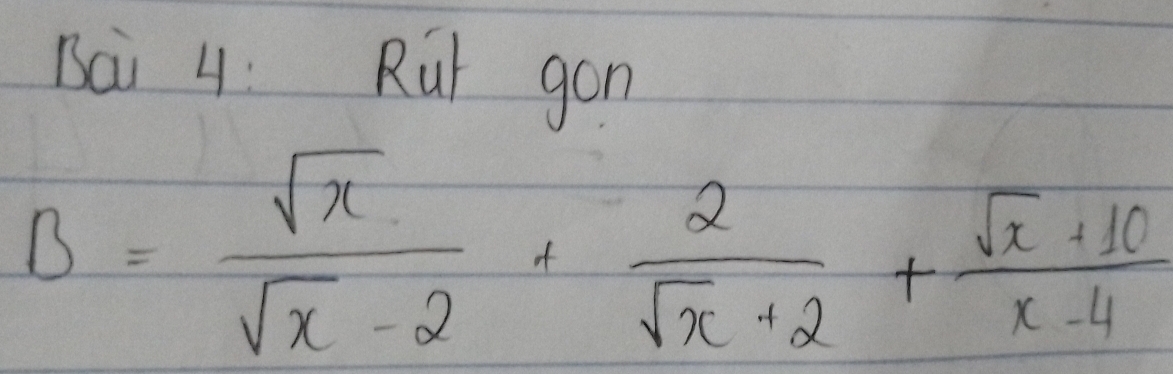 Bài 4: Rút gọn
B = \frac{\sqrt{x}}{\sqrt{x} - 2} + \frac{2}{\sqrt{x} + 2} + \frac{\sqrt{x} + 10}{x - 4}